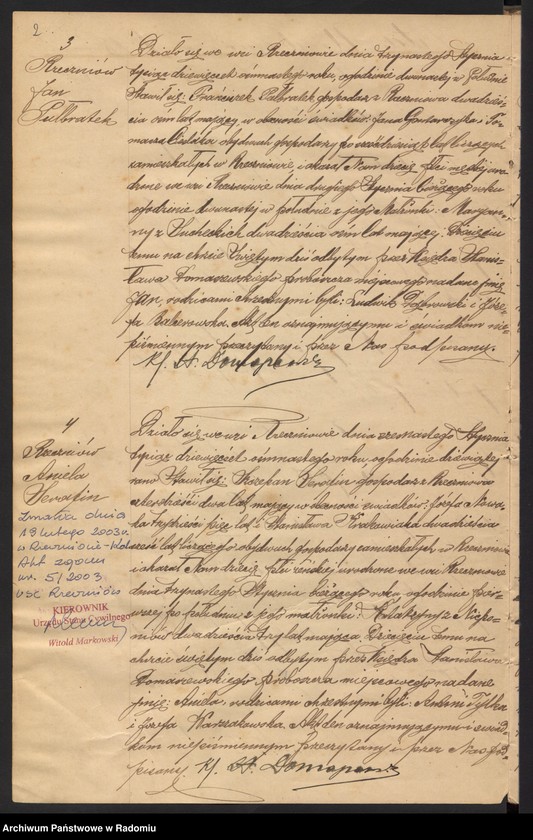 2
3
Rzeczniów
Jan
Pulbratek
Działo się we wsi Rzeczniowie dnia trzynastego Stycznia
tysiąc dziewięćset ośmnastego roku, o godzinie dwunastej w południe
Stawił się: Franciszek Pulbratek gospodarz z Rzeczniowa
ośm lat mający w obecności świadków: Jana
obydwuch gospodarzy po
zamieszkałych w Rzeczniowie i okazał Nam dziecię płci męzkiej uro-
dzone we wsi Rzeczniowie dnia drugiego Stycznia bieżącego roku
o godzinie dwunastej w południe z jego Małżonki: Maryan-
ny z dwadzieścia ośm lat mającej. Dziecięciu
temu na chrzcie Świętym dziś odbytym przez Księdza Stanis-
ława Domaszewskiego proboszcza miejscowego nadane imię
Jan, rodzicami chrzestnymi byli: Ludwik Dąbrowski i Józe-
fa Akt ten oznajmującym i świadkom nie-
piśmiennym przeczytany i przez Nas podpisany.
4
Rzeczniów
Aniela
Serafin
Zmarła dnia
19 lutego 2003 r.
w Rzeczniowie-Kol.
Akt zgonu
nr. 5/2003
USC Rzeczniów
KIEROWNIK
Urzędu Stanu Cywilnego
Witold Markowski
Działo się we wsi Rzeczniowie dnia szesnastego Stycznia
tysiąc dziewięćset ośmnastego roku, o godzinie dziewiątej
rano Stawił się: Szczepan Serafin gospodarz z Rzeczniowa
czterdzieści dwa lat mający w obecności świadków: Józefa Nowa-
ka trzydzieści pięć lat i Stanisława Krakowiaka dwadzieścia
sześć lat obydwuch gospodarzy zamieszkałych w Rzeczniowie
i okazał Nam dziecię płci żeńskiej urodzone we wsi Rzeczniowie
dnia trzynastego Stycznia bieżącego roku, o godzinie pier-
wszej po południu z jego małżonki: Katarzyny z
dwadzieścia trzy lat mającej. Dziecięciu temu na
chrzcie świętym dziś odbytym przez Księdza Stanisława
Domaszewskiego Proboszcza miejscowego nadane
imię: Aniela, rodzicami chrzestnymi byli: Antoni
i Józefa Akt ten oznajmującemu i świad-
kom niepiśmiennym przeczytany i przez Nas pod-
pisany.
Archiwum Państwowe w Radomiu